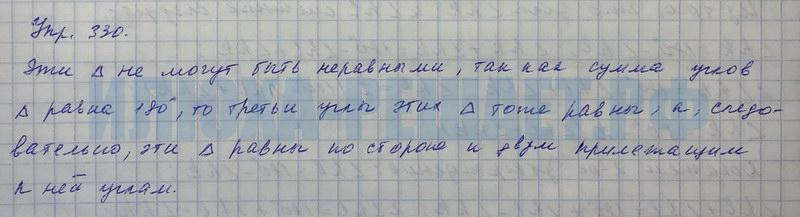 Упр. 330.
Эти Δ не могут быть неравными, так как сумма углов
Δ равна 180°, то третьи углы этих Δ тоже равны, и, следо-
вательно, эти Δ равны по стороне и двум прилежащим
к ней углам.